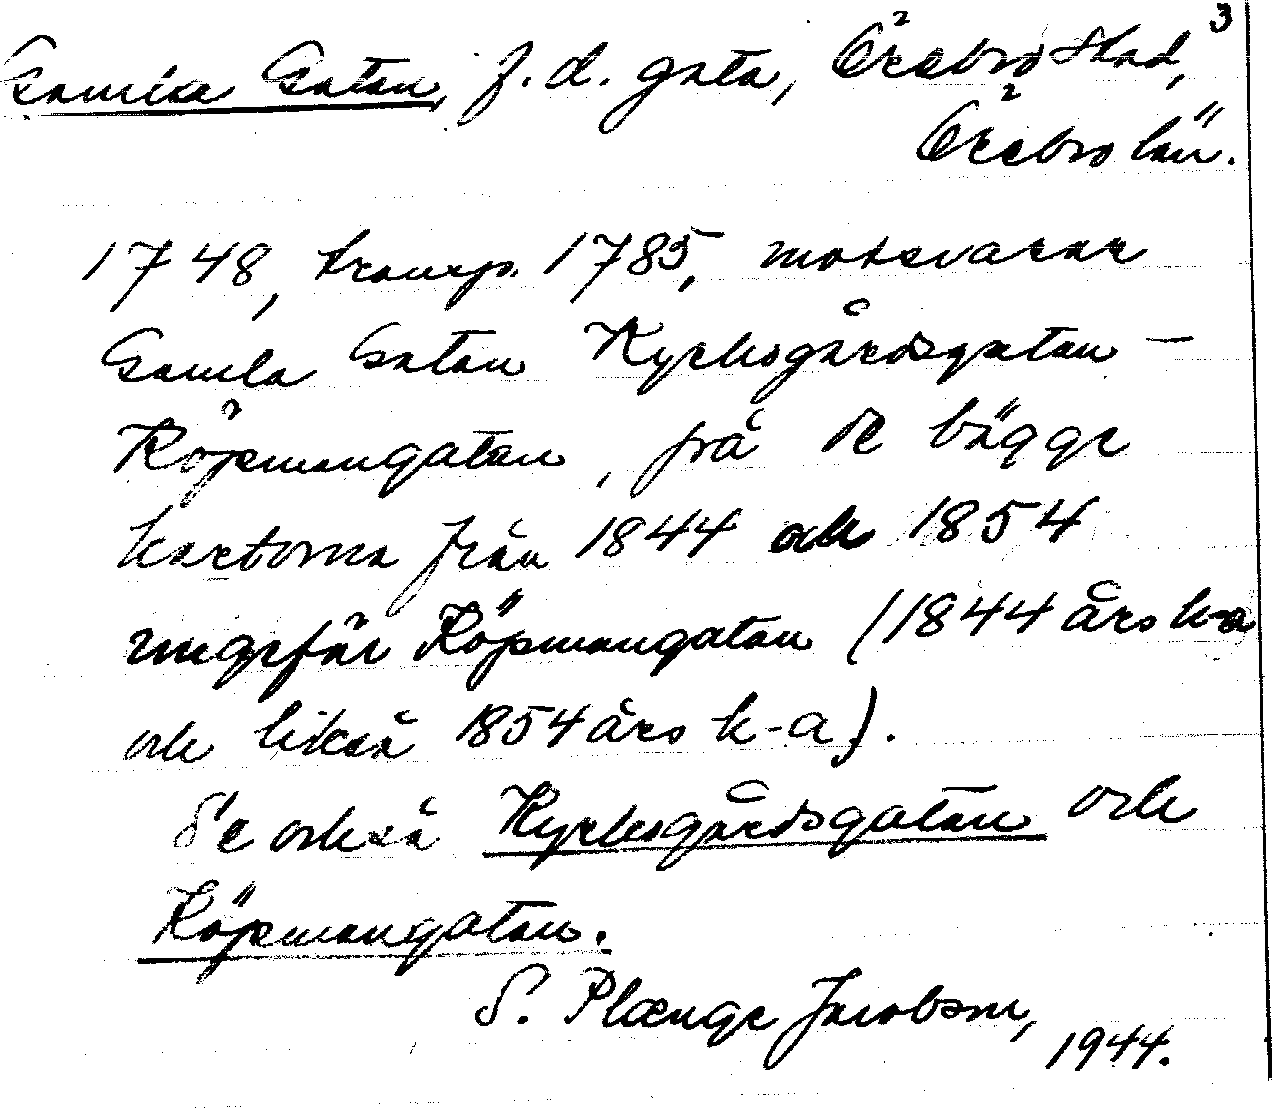 3
Gamla Gatan, f.d. gata, Örebro stad,
Örebro län.
1748, transp. 1785, motsvarar
Gamla Gatan Kyrkogårdsgatan –
Köpmangatan, på de bägge
kartorna från 1844 och 1854
ungefär Köpmangatan (1844 års k-a
och likaså 1854 års k-a).
Se också Kyrkogårdsgatan och
Köpmangatan.
S. Plænge Jacobson,
1944.